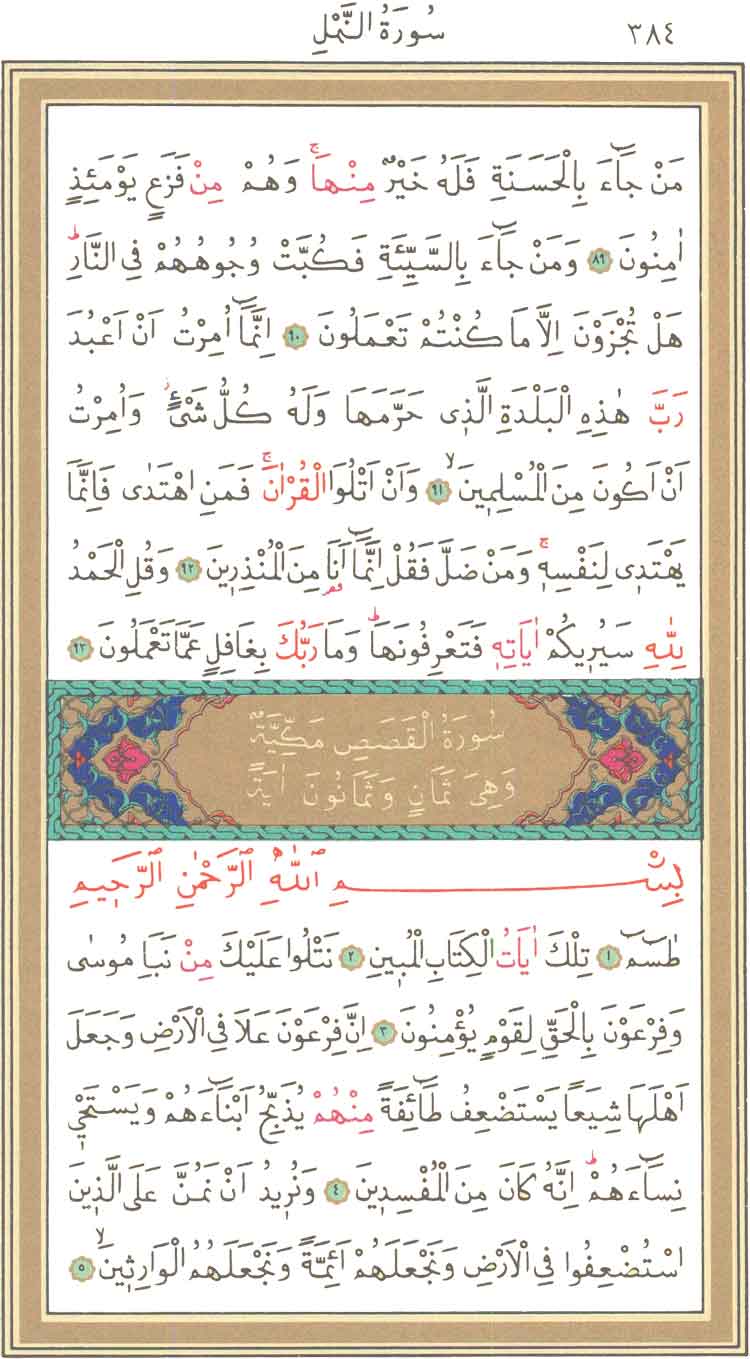 سُورَةُ النَّمْلِ ٣٨٤
مَنْ جَٓاءَ بِالْحَسَنَةِ فَلَهُ خَيْرٌ مِنْهَاۚ وَهُمْ مِنْ فَزَعٍ يَوْمَئِذٍ
اٰمِنُونَ ﴿٨٩﴾ وَمَنْ جَٓاءَ بِالسَّيِّئَةِ فَكُبَّتْ وُجُوهُهُمْ فِي النَّارِۜ
هَلْ تُجْزَوْنَ اِلَّا مَا كُنْتُمْ تَعْمَلُونَ ﴿٩٠﴾ اِنَّمَٓا اُمِرْتُ اَنْ اَعْبُدَ
رَبَّ هٰذِهِ الْبَلْدَةِ الَّذ۪ي حَرَّمَهَا وَلَهُ كُلُّ شَيْءٍۘ وَاُمِرْتُ
اَنْ اَكُونَ مِنَ الْمُسْلِم۪ينَۙ ﴿٩١﴾ وَاَنْ اَتْلُوَا الْقُرْاٰنَۚ فَمَنِ اهْتَدٰى فَاِنَّمَا
يَهْتَد۪ي لِنَفْسِه۪ۚ وَمَنْ ضَلَّ فَقُلْ اِنَّمَٓا اَنَا۬ مِنَ الْمُنْذِر۪ينَ ﴿٩٢﴾ وَقُلِ الْحَمْدُ
لِلّٰهِ سَيُر۪يكُمْ اٰيَاتِه۪ فَتَعْرِفُونَهَاۜ وَمَا رَبُّكَ بِغَافِلٍ عَمَّا تَعْمَلُونَ ﴿٩٣﴾
سُورَةُ الْقَصَصِ مَكِّيَّةٌ
وَهِيَ ثَمَانٍ وَثَمَانُونَ اٰيَةً
بِسْمِ اللّٰهِ الرَّحْمٰنِ الرَّح۪يمِ
طٰسٓمٓ ﴿١﴾ تِلْكَ اٰيَاتُ الْكِتَابِ الْمُب۪ينِ ﴿٢﴾ نَتْلُوا عَلَيْكَ مِنْ نَبَأِ مُوسٰى
وَفِرْعَوْنَ بِالْحَقِّ لِقَوْمٍ يُؤْمِنُونَ ﴿٣﴾ اِنَّ فِرْعَوْنَ عَلَا فِي الْاَرْضِ وَجَعَلَ
اَهْلَهَا شِيَعاً يَسْتَضْعِفُ طَٓائِفَةً مِنْهُمْ يُذَبِّحُ اَبْنَٓاءَهُمْ وَيَسْتَحْي۪
نِسَٓاءَهُمْۜ اِنَّهُ كَانَ مِنَ الْمُفْسِد۪ينَ ﴿٤﴾ وَنُر۪يدُ اَنْ نَمُنَّ عَلَى الَّذ۪ينَ
اسْتُضْعِفُوا فِي الْاَرْضِ وَنَجْعَلَهُمْ اَئِمَّةً وَنَجْعَلَهُمُ الْوَارِث۪ينَۙ ﴿٥﴾